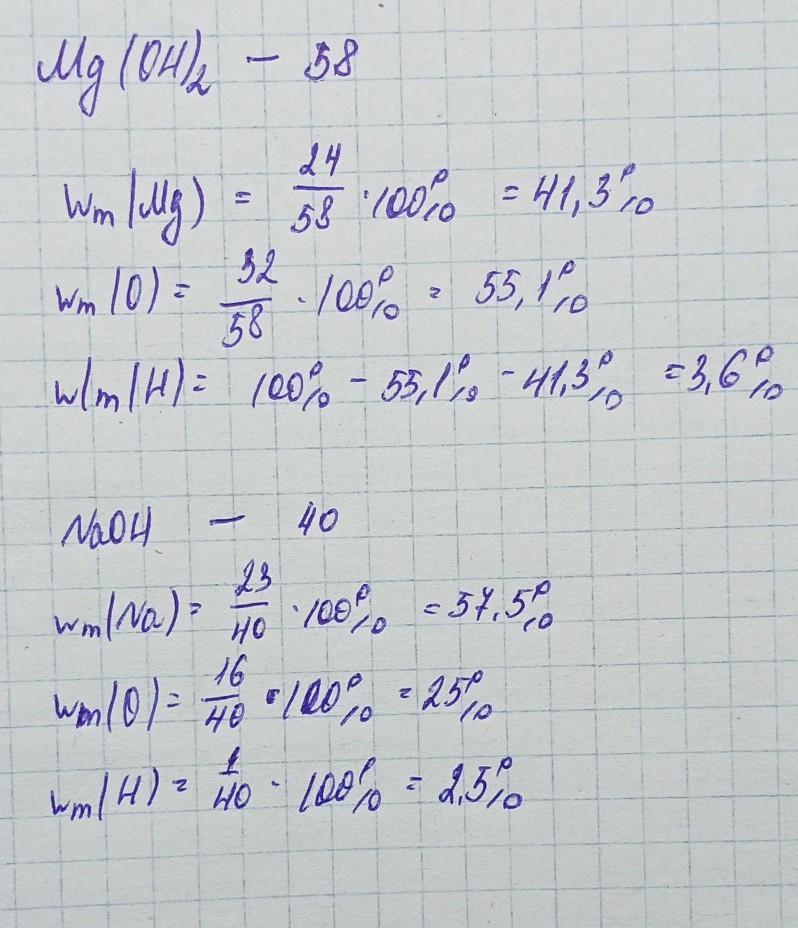 Mg(OH)₂ — 58
wm(Mg) = 24/58 · 100% = 41,3%
wm(O) = 32/58 · 100% = 55,1%
w(m(H) = 100% - 55,1% - 41,3% = 3,6%
NaOH — 40
wm(Na) = 23/40 · 100% = 57,5%
wm(O) = 16/40 · 100% = 25%
wm(H) = 1/40 · 100% = 2,5%